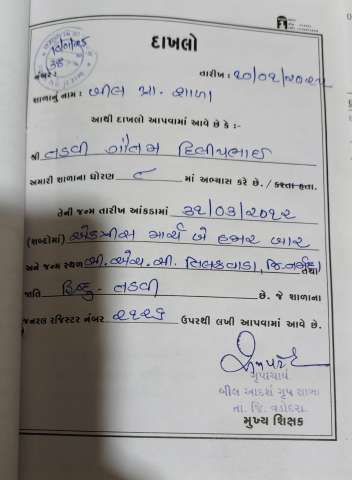 દાખલો
નંબર :
તારીખ : ૧૦/૦૧/૨૦૨૫
શાળાનું નામ : બીલ પ્રા. શાળા
આથી દાખલો આપવામાં આવે છે કે :-
શ્રી તડવી ગૌતમ દિલીપભાઈ
અમારી શાળાના ધોરણ ૮ માં અભ્યાસ કરે છે. / કરતા હતા.
તેની જન્મ તારીખ આંકડામાં ૩૧/૦૩/૨૦૧૨
(શબ્દોમાં) એકત્રીસ માર્ચ બે હજાર બાર
અને જન્મ સ્થળ સી.એચ.સી. તિલકવાડા, જિ.નર્મદા તથા
જાતિ હિન્દુ - તડવી છે. જે શાળાના
જનરલ રજિસ્ટર નંબર ૨૧૨૬ ઉપરથી લખી આપવામાં આવે છે.
બીલ આદર્શ ગૃપ શાળા
તા. જિ. વડોદરા
મુખ્ય શિક્ષક